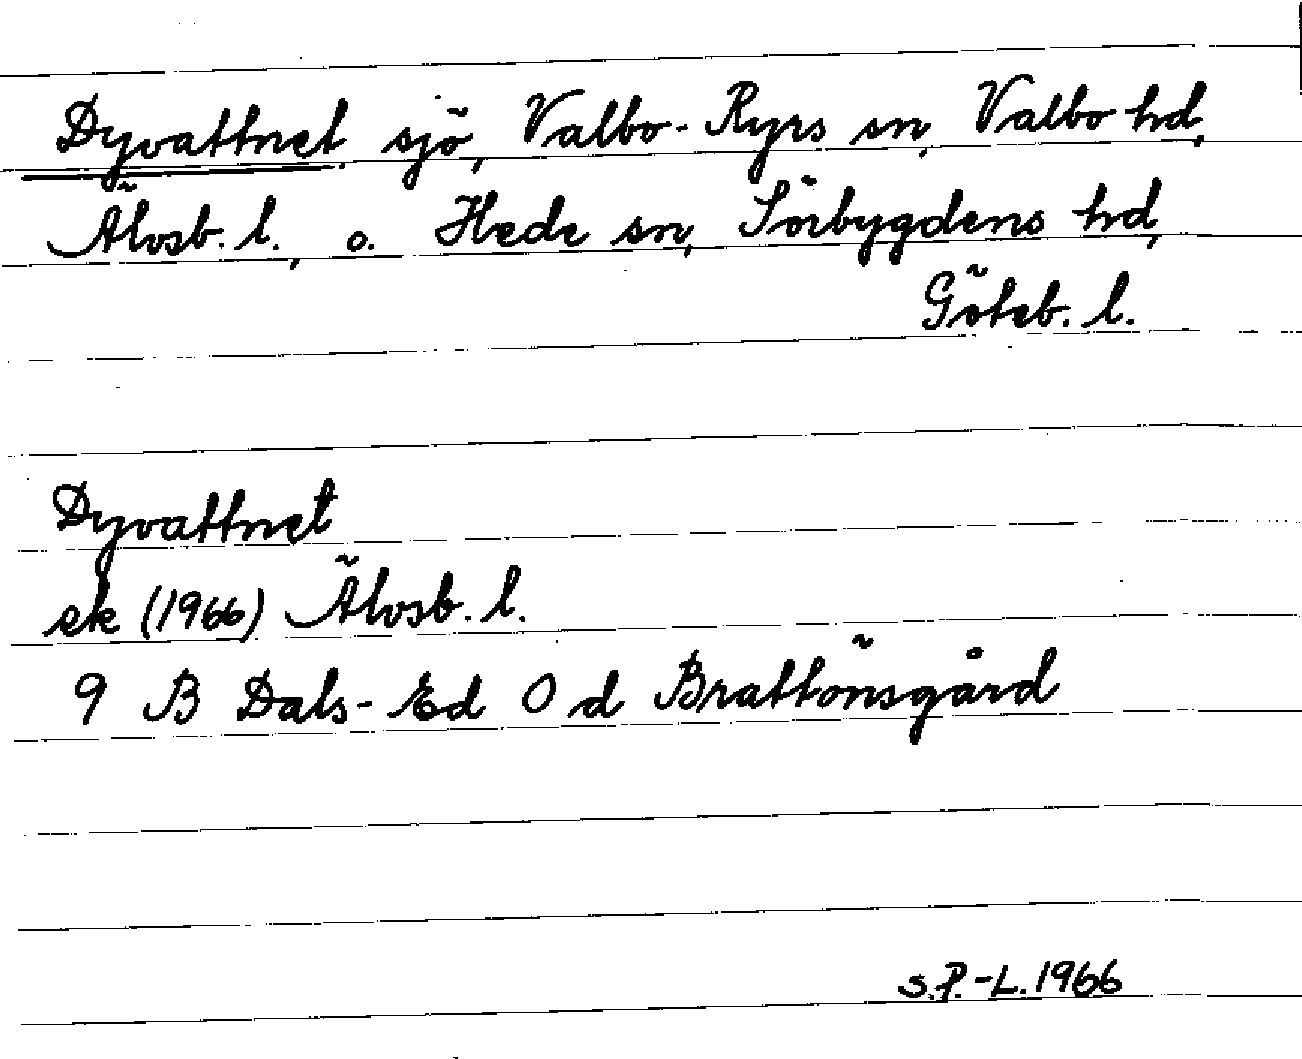 Dyvattnet sjö, Valbo-Ryrs sn, Valbo hd,
Älvsb. l., o. Hede sn, Sörbygdens hd,
Göteb. l.
Dyvattnet
ek (1966) Älvsb. l.
9 B Dals-Ed O d Brattönsgård
S.P.-L. 1966